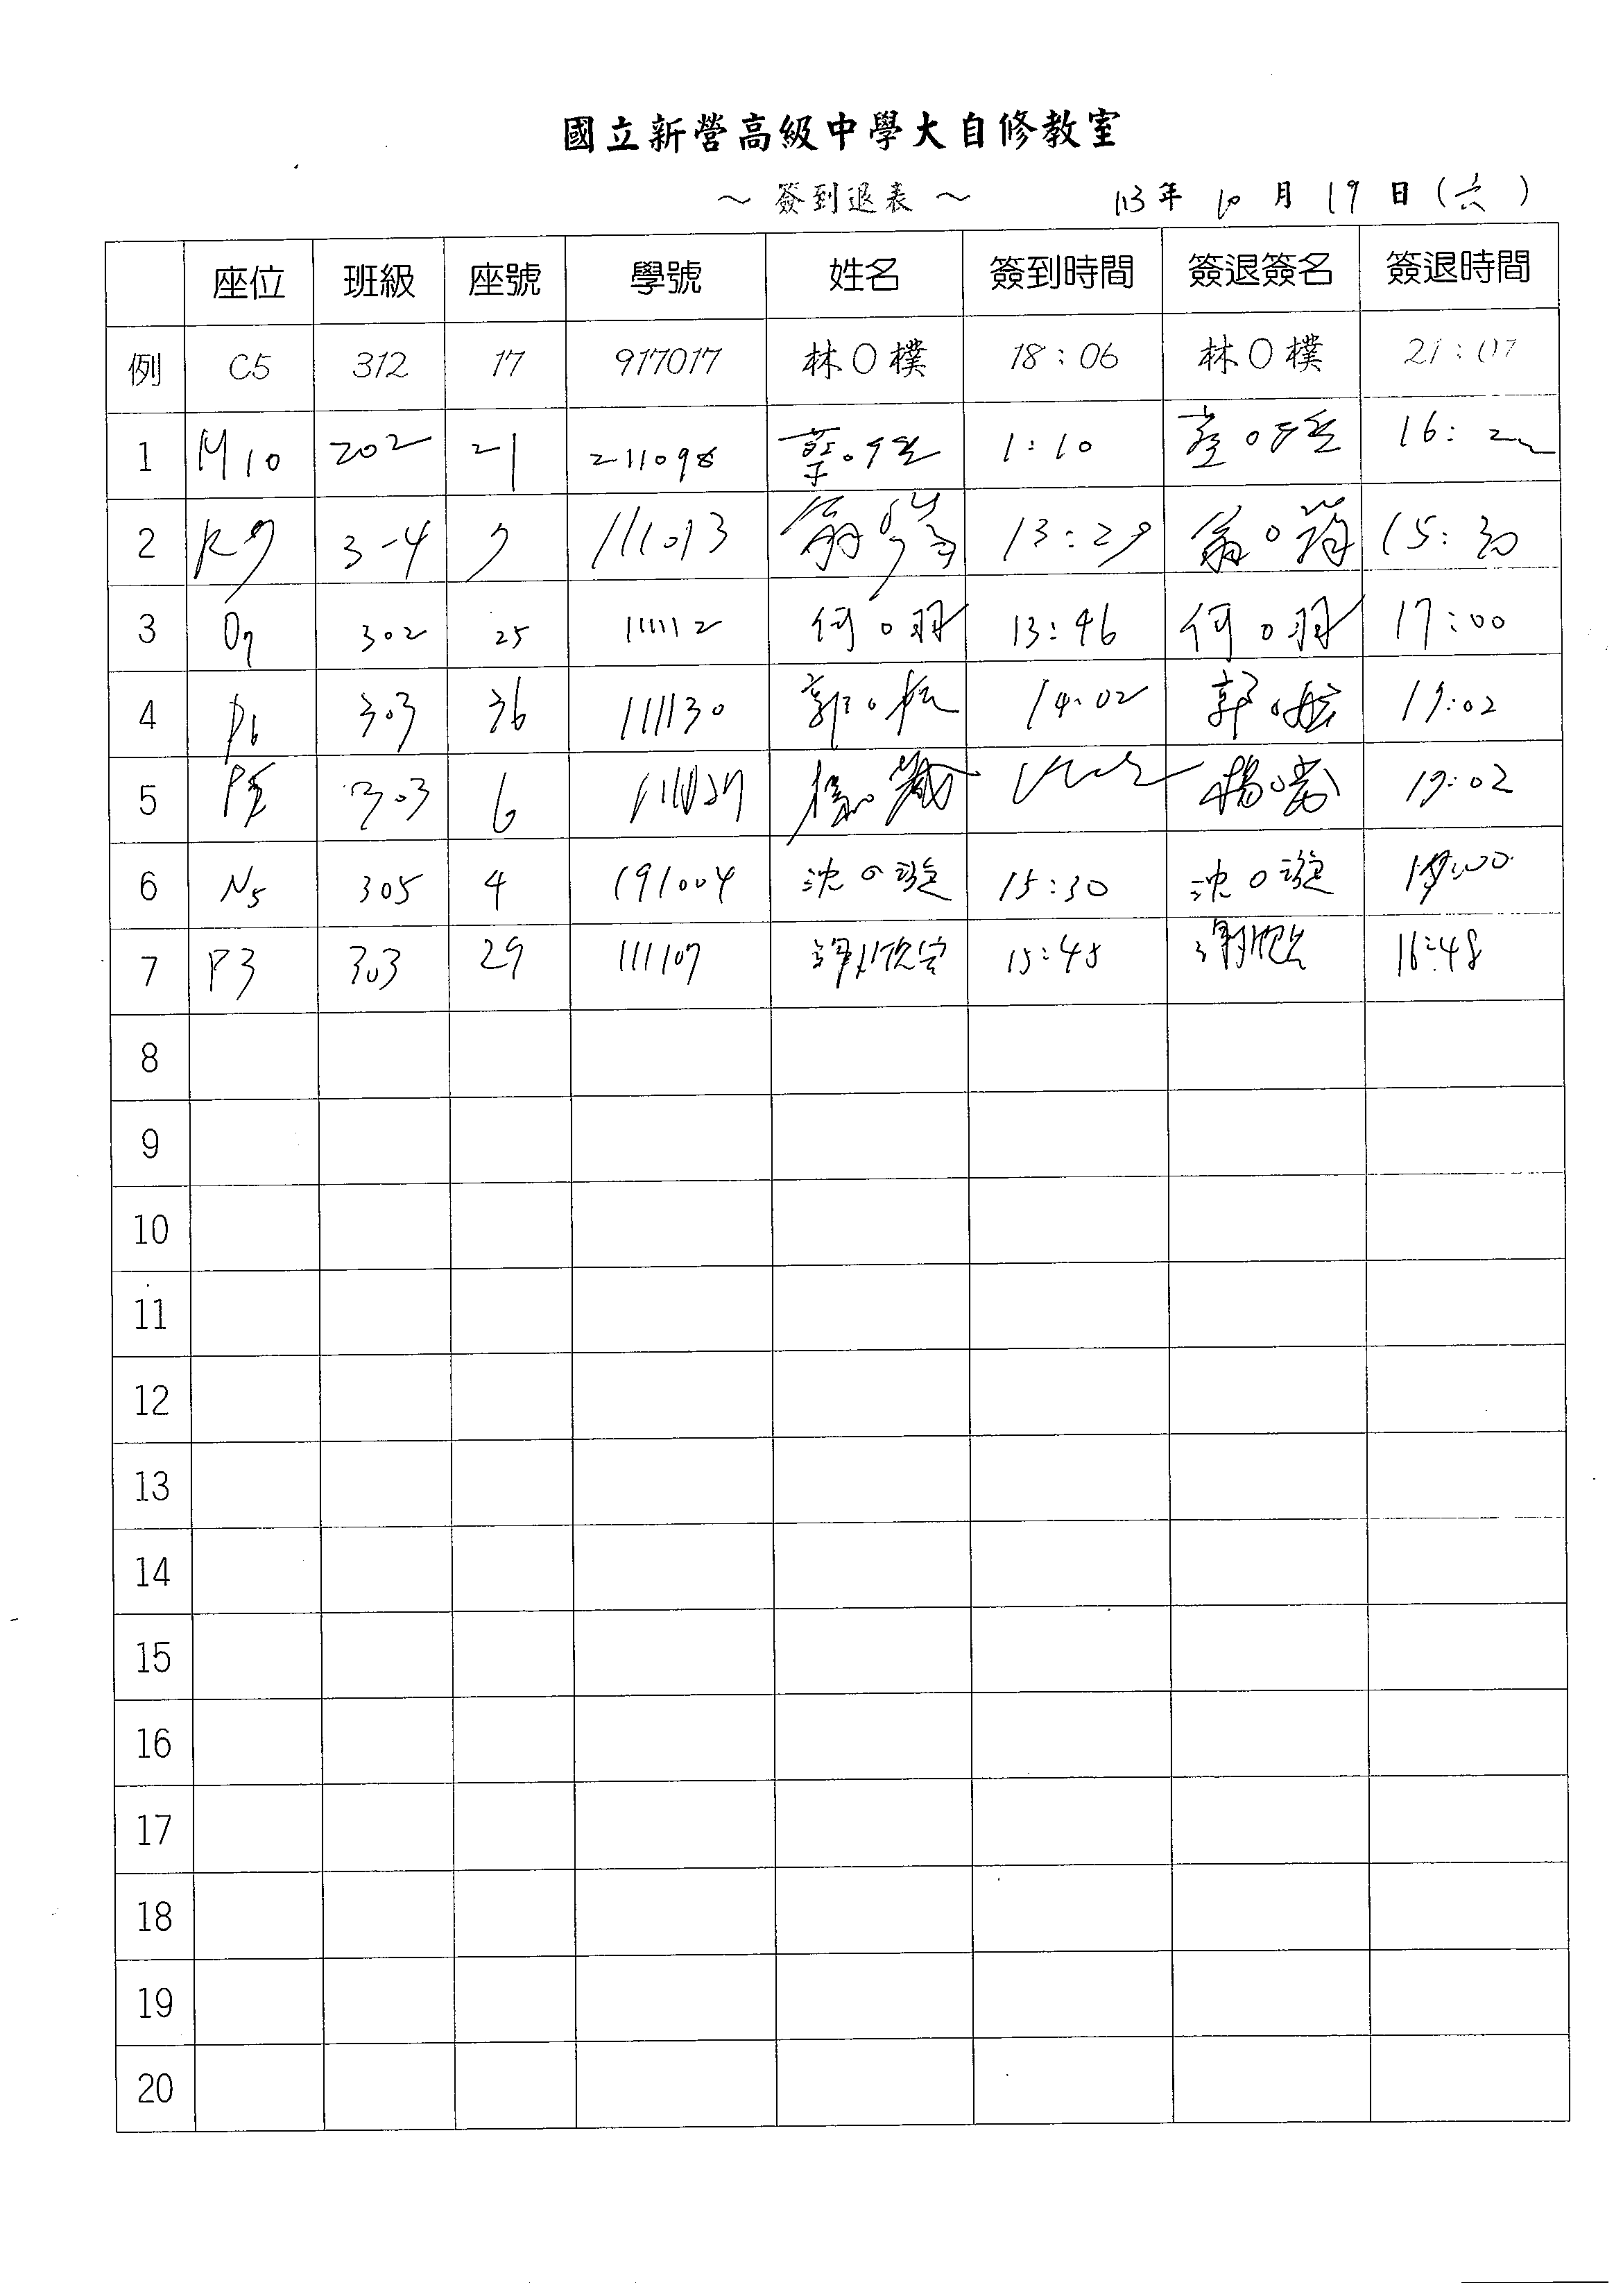 國立新營高級中學大自修教室
～ 簽到退表 ～ 113年 10月 19日(六)
座位 班級 座號 學號 姓名 簽到時間 簽退簽名 簽退時間
例 C5 312 17 917017 林〇樸 18:06 林〇樸 21:07
1 M10 202 21 211098 蔡〇 1:10 蔡〇 16:
2 K9 3-4 7 111013 翁〇 13:29 翁〇 15:30
3 O7 302 25 111112 何〇羽 13:46 何〇羽 17:00
4 P6 303 36 111130 郭〇 14:02 郭〇 19:02
5 303 6 楊〇 楊〇 19:02
6 N5 305 4 191004 沈〇璇 15:30 沈〇璇
7 P3 303 29 111107 謝 15:45 謝 16:48
8
9
10
11
12
13
14
15
16
17
18
19
20